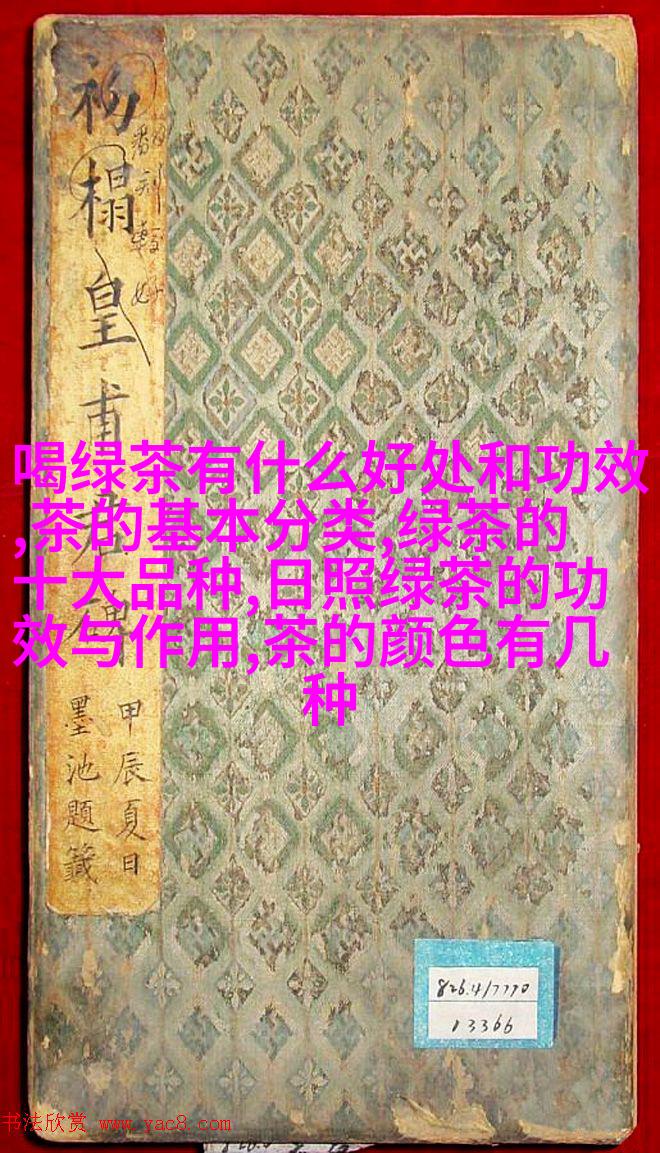 初榻皇甫君碑
甲辰夏日
墨池題籤
喝绿茶有什么好处和功效
,茶的基本分类,绿茶的
十大品种,日照绿茶的功
效与作用,茶的颜色有几
种
826.4/7770
13366
书法欣赏 www.yac8.com